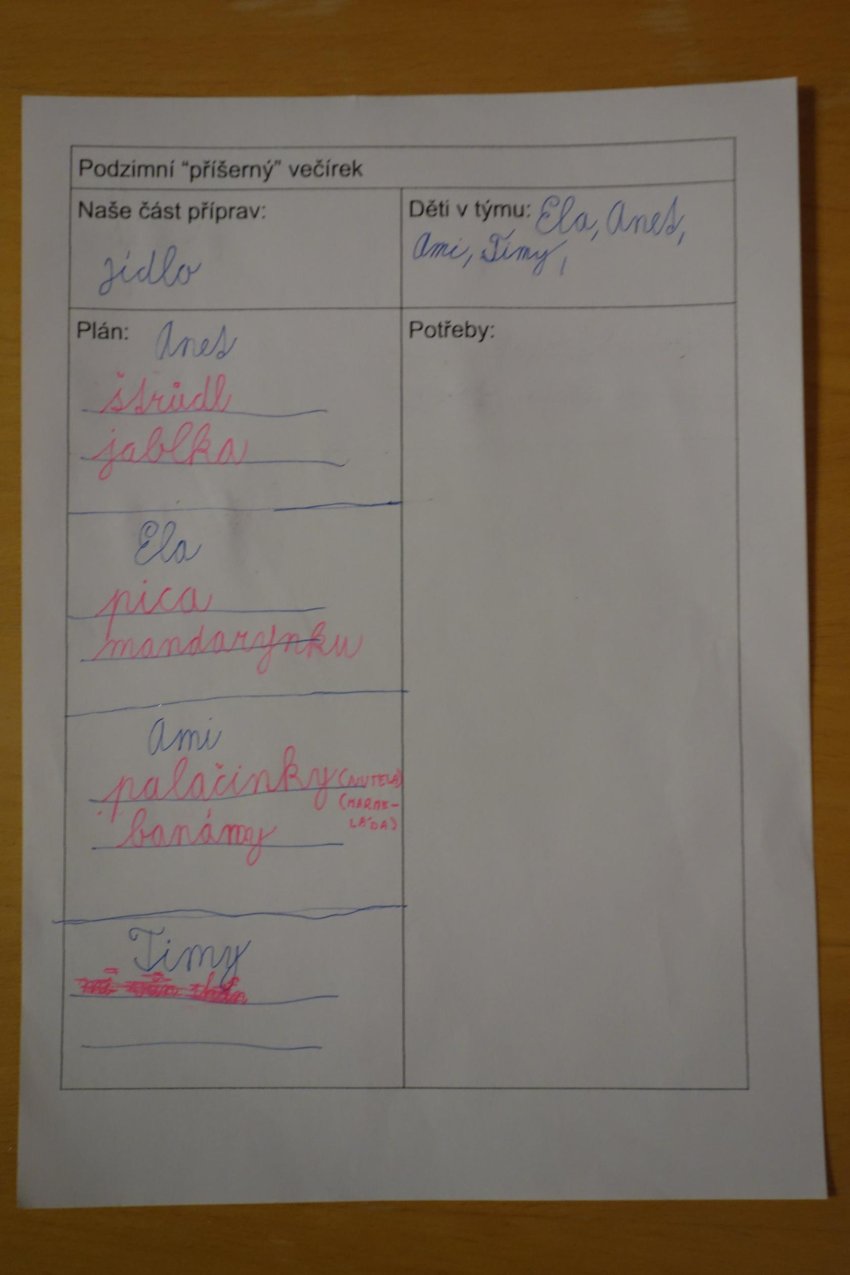 Podzimní “příšerný” večírek
Naše část příprav:
jídlo
Děti v týmu: Ela, Anet,
Ami, Timy,
Plán: Anet
štrůdl
jablka
Ela
pica
mandarynku
Ami
palačinky (NUTELA)
(MARME-
LÁDA)
banámy
Timy
Potřeby: